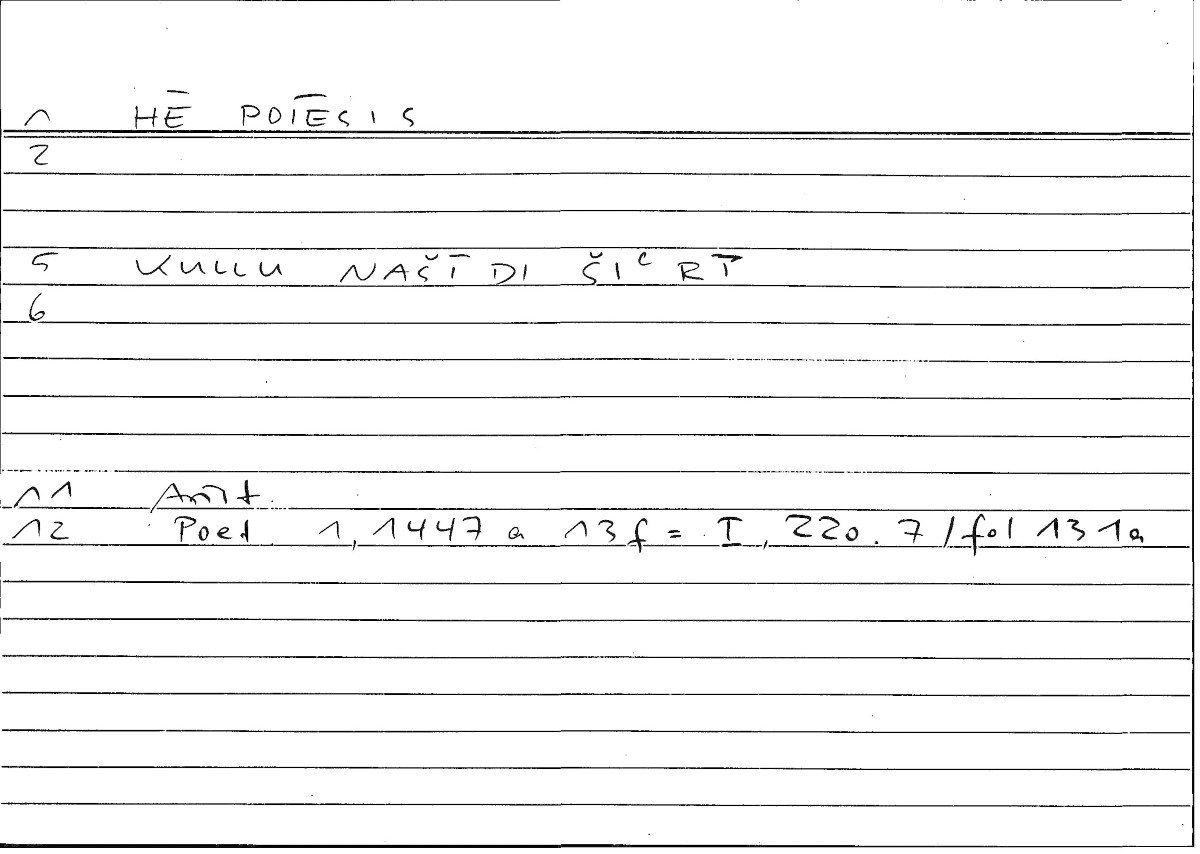 1 HĒ POIĒSIS
2
5 KULLU NAŠĪDI ŠIʿRĪ
6
11 Arist.
12 Poet 1, 1447 a 13 f = I, 220.7 / fol 131a